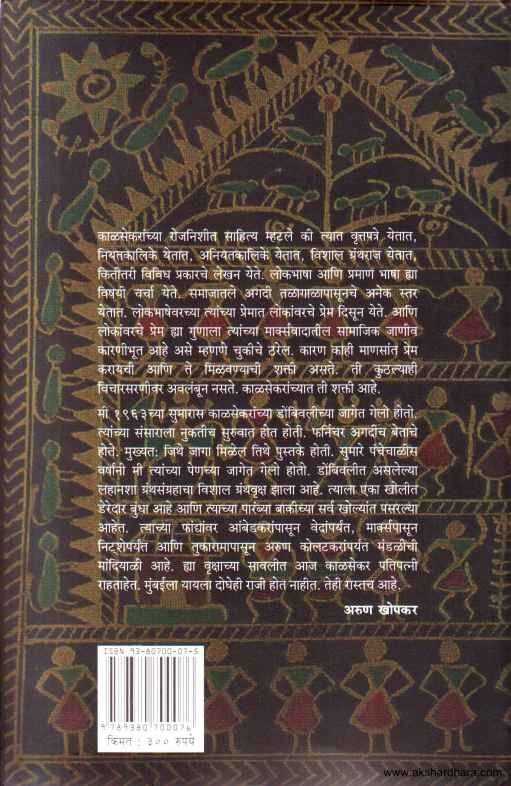 काळसेकरांच्या रोजनिशीत साहित्य म्हटले की त्यात वृत्तपत्रे येतात,
नियतकालिके येतात, अनियतकालिके येतात, विशाल ग्रंथराज येतात,
कितीतरी विविध प्रकारचे लेखन येते. लोकभाषा आणि प्रमाण भाषा ह्या
विषयी चर्चा येते. समाजातले अगदी तळागाळापासूनचे अनेक स्तर
येतात. लोकभाषेवरच्या त्यांच्या प्रेमात लोकांवरचे प्रेम दिसून येते. आणि
लोकांवरचे प्रेम ह्या गुणाला त्यांच्या मार्क्सवादातील सामाजिक जाणीव
कारणीभूत आहे असे म्हणणे चुकीचे ठरेल. कारण काही माणसांत प्रेम
करायची आणि ते मिळवण्याची शक्ती असते. ती कुठल्याही
विचारसरणीवर अवलंबून नसते. काळसेकरांच्यात ती शक्ती आहे.
मी १९६३च्या सुमारास काळसेकरांच्या डोंबिवलीच्या जागेत गेलो होतो.
त्यांच्या संसाराला नुकतीच सुरुवात होत होती. फर्निचर अगदीच बेताचे
होते. मुख्यत: जिथे जागा मिळेल तिथे पुस्तके होती. सुमारे पंचेचाळीस
वर्षांनी मी त्यांच्या पेणच्या जागेत गेलो होतो. डोंबिवलीत असलेल्या
लहानशा ग्रंथसंग्रहाचा विशाल ग्रंथवृक्ष झाला आहे. त्याला एका खोलीत
डेरेदार बुंधा आहे आणि त्याच्या पारंब्या बाकीच्या सर्व खोल्यांत पसरल्या
आहेत. त्याच्या फांद्यांवर आंबेडकरांपासून वेदांपर्यंत, मार्क्सपासून
निट्शेपर्यंत आणि तुकारामापासून अरुण कोलटकरांपर्यंत मंडळींची
मांदियाळी आहे. ह्या वृक्षाच्या सावलीत आज काळसेकर पतिपत्नी
राहताहेत. मुंबईला यायला दोघेही राजी होत नाहीत. तेही रास्तच आहे.
अरुण खोपकर
ISBN 93-80700-07-5
9 789380 700076
किंमत : ३०० रुपये
www.akshardhara.com